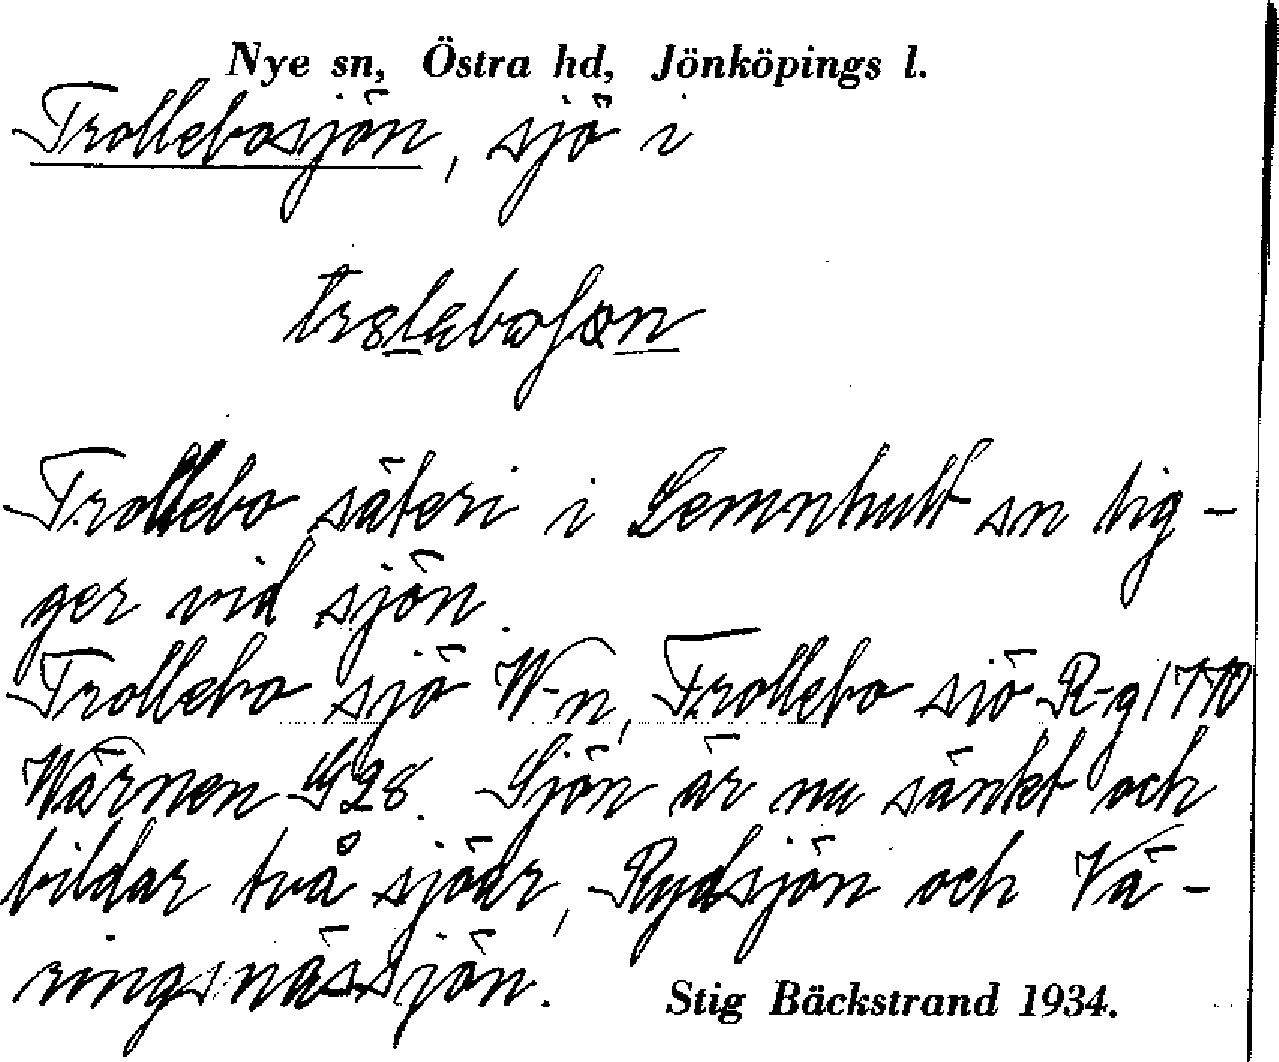 Nye sn, Östra hd, Jönköpings l.
Trollebosjön, sjö i
Trollebo säteri i Lemnhult sn lig-
ger vid sjön.
Trollebo sjö W-n, Trollebo sjö R-g 1770
Wärnen S28. Sjön är nu sänkt och
bildar två sjöar, Rydsjön och Vä-
ringsnässjön.
Stig Bäckstrand 1934.